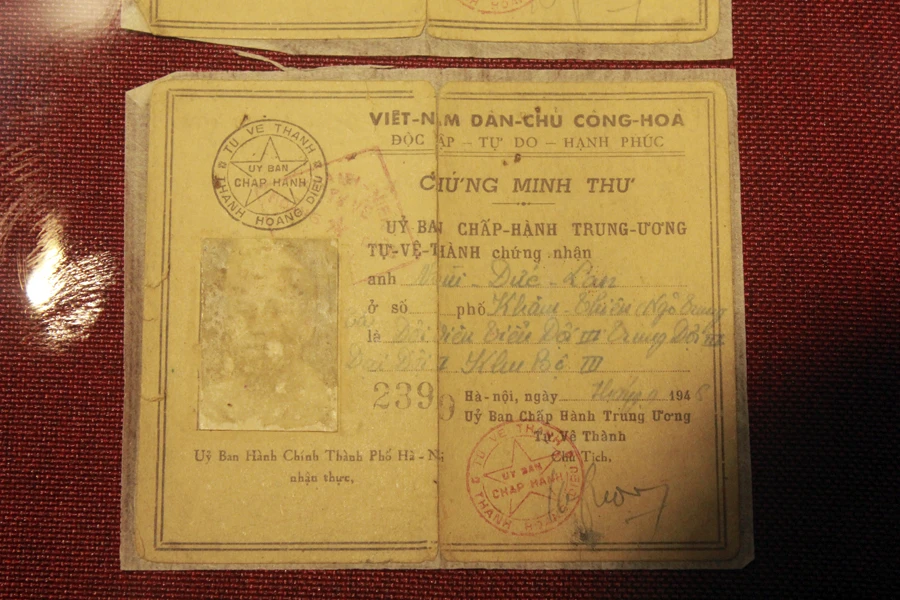 TỰ VỆ THÀNH
UỶ BAN
CHẤP HÀNH
THÀNH HOÀNG DIỆU
VIỆT-NAM DÂN-CHỦ CỘNG-HOÀ
ĐỘC LẬP - TỰ DO - HẠNH PHÚC
CHỨNG MINH THƯ
UỶ BAN CHẤP-HÀNH TRUNG-ƯƠNG
TỰ-VỆ-THÀNH chứng nhận
anh Đức - Lân
ở số phố Khâm - Thiên Ngõ Trung
là Đội viên Tiểu Đội III Trung Đội III
Đại Đội I Khu Bộ III
2390
Hà-nội, ngày 194
Uỷ Ban Chấp Hành Trung Ương
Tự Vệ Thành
Chủ Tịch,
Uỷ Ban Hành Chính Thành Phố Hà - Nội
nhận thực,
TỰ VỆ THÀNH
UỶ BAN
CHẤP HÀNH
THÀNH HOÀNG DIỆU